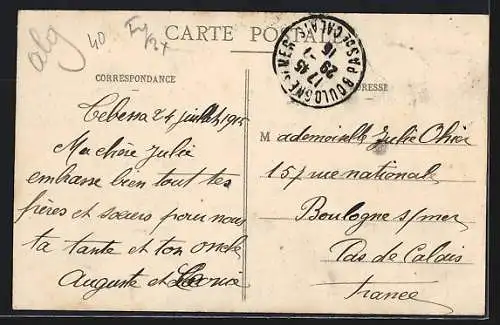 alg
40
CARTE POSTALE
BOULOGNE S/MER PAS DE CALAIS
17 45
29 -7
16
CORRESPONDANCE
ADRESSE
Tebessa 24 juillet 1915
Ma chère Julie
embrasse bien tout tes
frères et soeurs pour nous
ta tante et ton oncle
Auguste et Léonie
Mademoiselle Julie
157 rue national
Boulogne s/mer
Pas de Calais
France